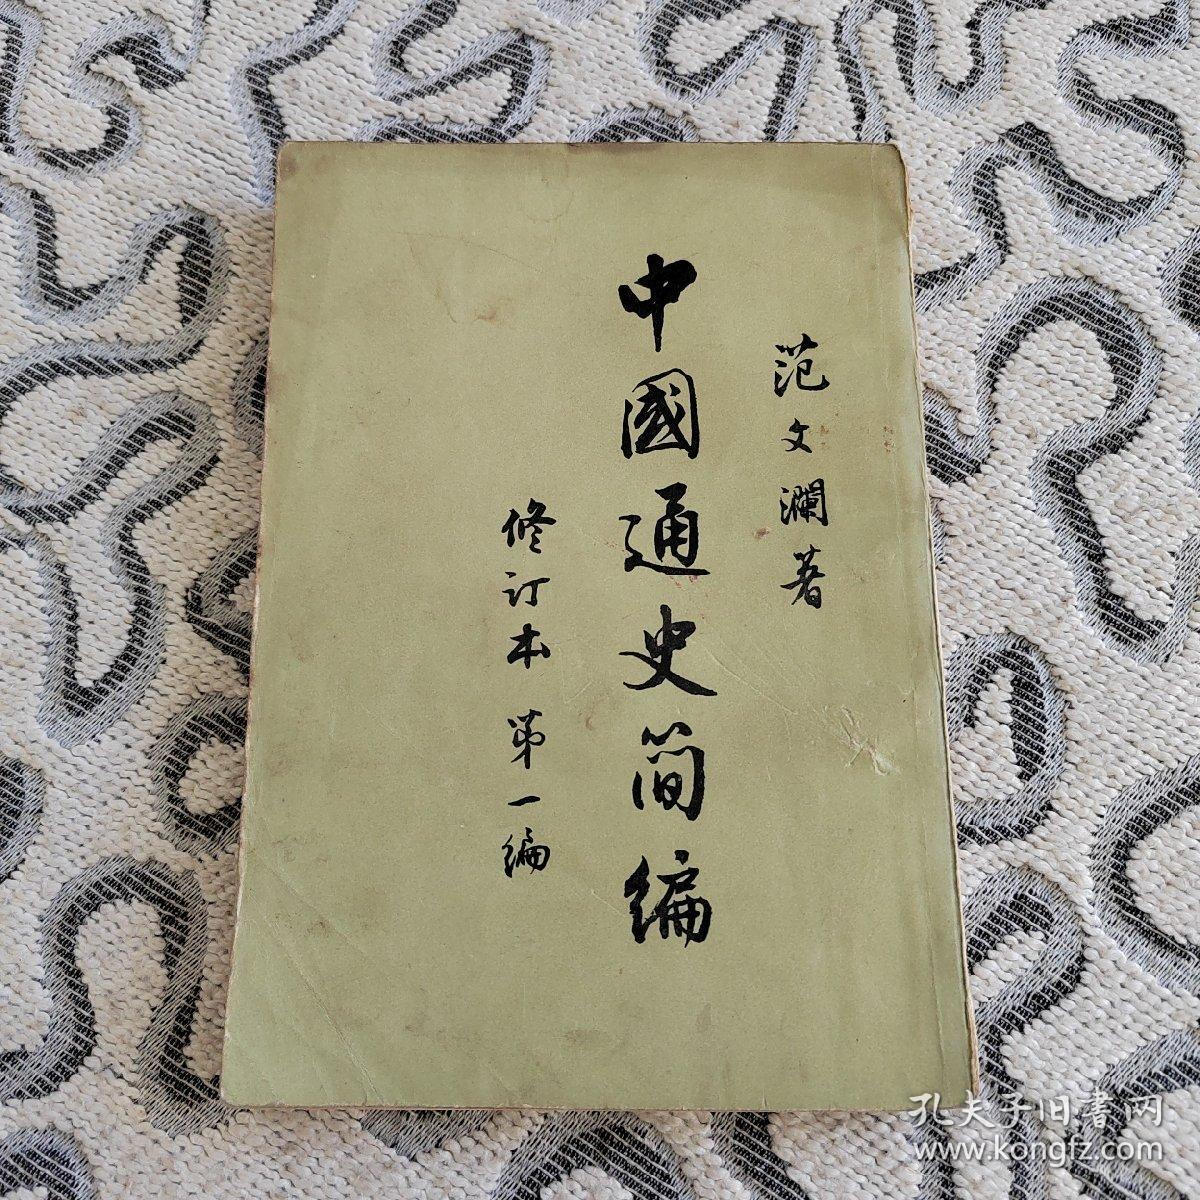 范文瀾著
中國通史简编
修订本 第一编
孔夫子旧書网
www.kongfz.com